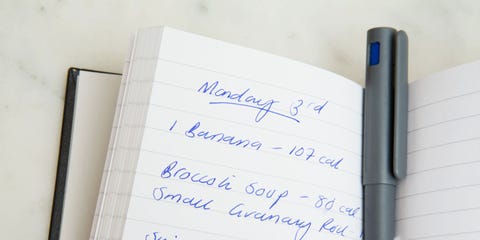 Monday 3rd
1 Banana - 107 cal
Broccoli Soup - 80 cal
Small Granary Roll -